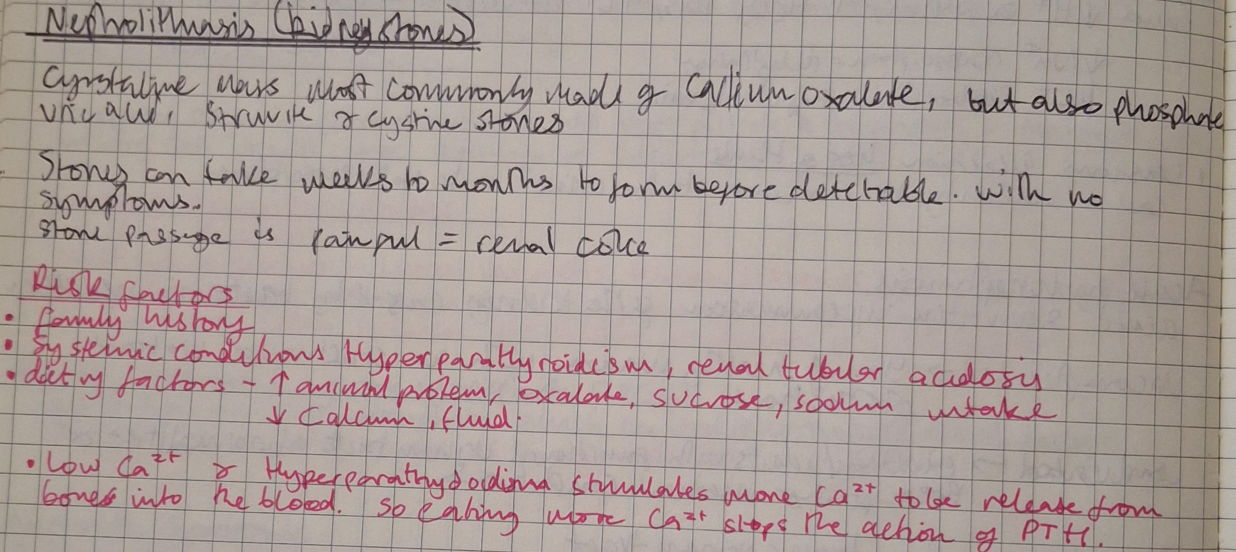 Nephrolithiasis (kidney stones)
Crystalline mass most commonly made of Calcium oxalate, but also phosphate
uric acid, struvite & cystine stones
Stones can take weeks to months to form before detectable. With no
symptoms.
Stone passage is painful = renal colic
Risk factors
• family history
• Systemic conditions Hyperparathyroidism, renal tubular acidosis
• dietry factors - ↑ animal protein, oxalate, sucrose, sodium intake
↓ Calcium, fluid.
• Low Ca²⁺ & Hyperparathyroidism stimulates more Ca²⁺ to be release from
bones into the blood. So eating more Ca²⁺ stops the action of PTH.